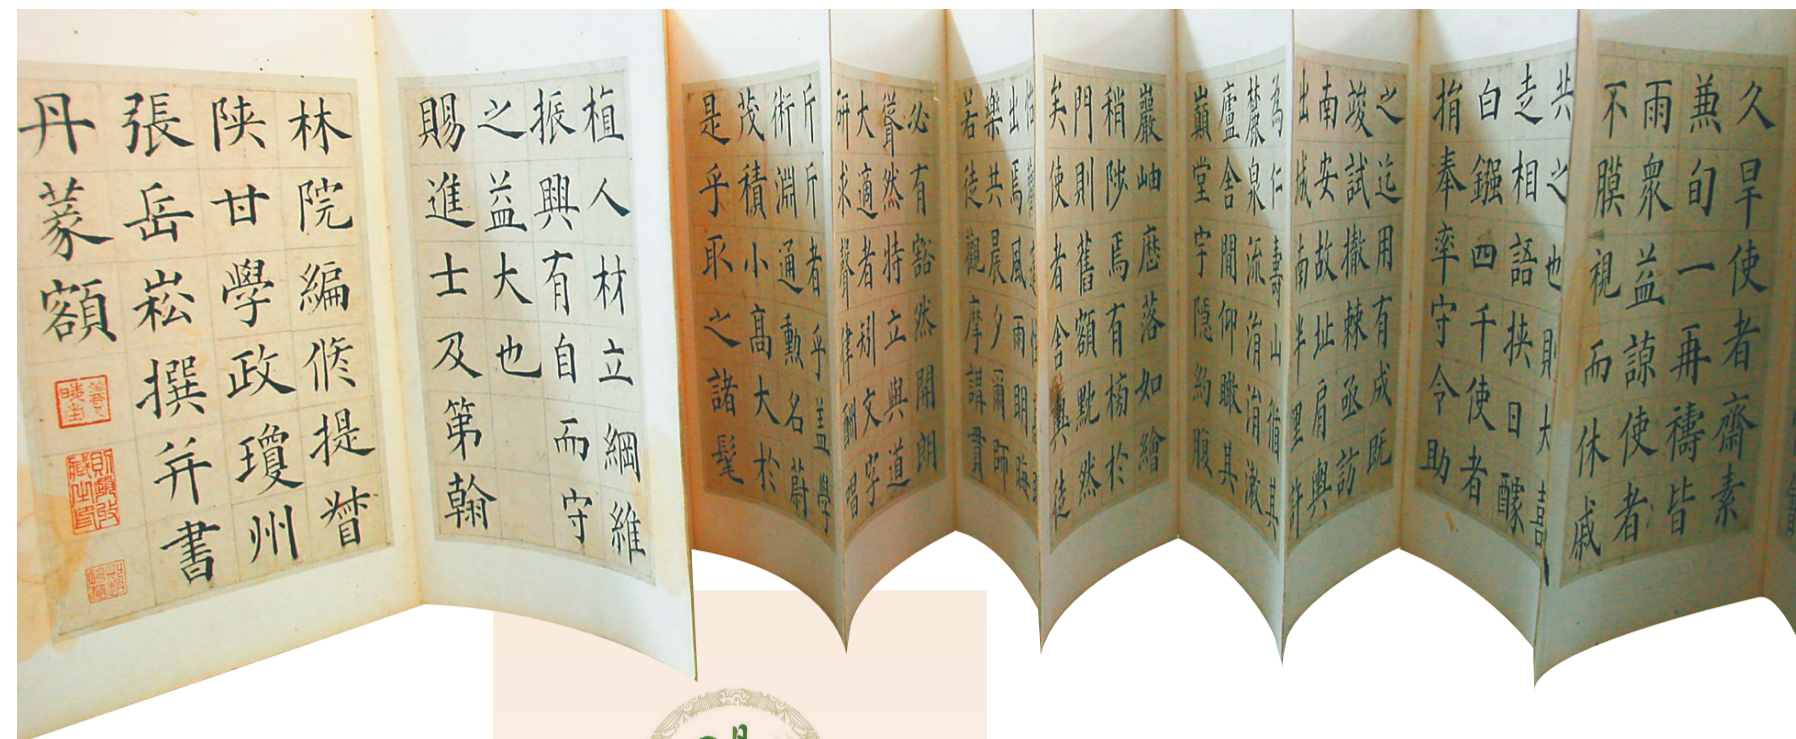 久旱使者齋素
兼旬一再禱皆
雨衆益諒使者
不膜視而休戚
共之也則大喜
走相語挾日醵
白鏹四千使者
捐奉率守令助
之迄用有成既
竣試撤棘丞訪
南安故址肩輿
出城南半里許
為仁壽山循其
麓泉流涓涓潄
廬舍間仰瞰其
巔堂宇隱約腹
巖岫厯落如繪
稍陟焉有楠於
門則舊額黕然
矣使者舍輿徒
出焉風雨明晦
樂共晨夕爾師
若徒觀摩講貫
必有豁然開朗
聳然特立與道
大適者矧文字
研求聲律酬唱
斤斤者乎盖學
術淵通勳名蔚
茂積小高大於
是乎取之諸髦
植人材立綱維
振興有自而守
之益大也
賜進士及第翰
林院編修提督
陝甘學政瓊州
張岳崧撰并書
丹蒙額